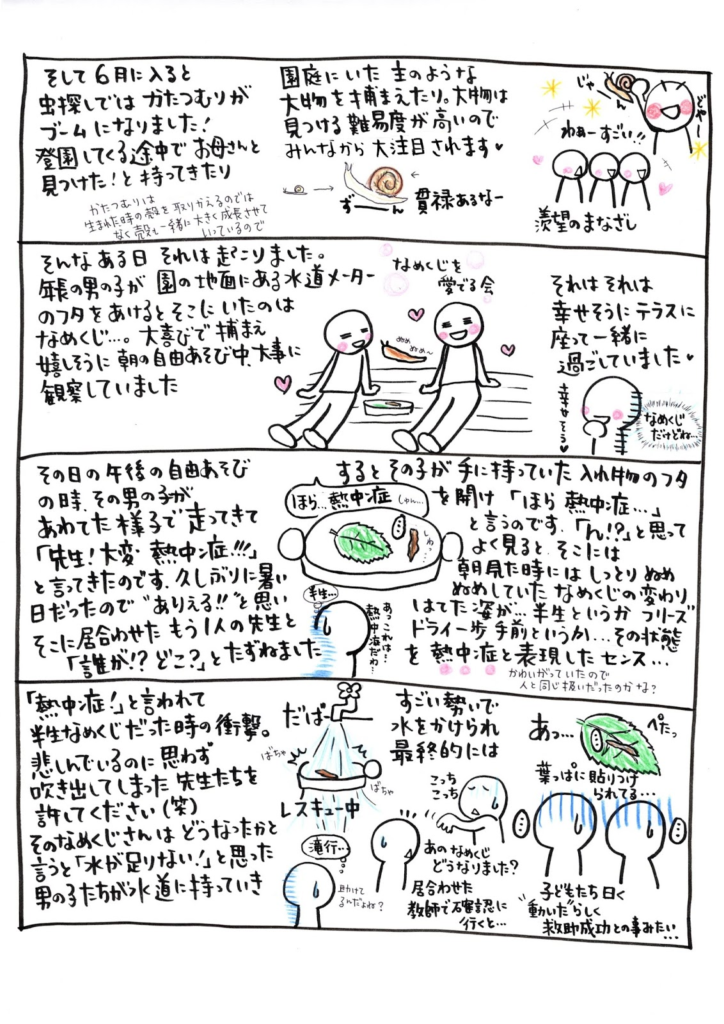 そして6月に入ると
虫探しでは かたつむりが
ブームになりました!
登園してくる途中で お母さんと
見つけた!と 持ってきたり
かたつむりは
生まれた時の殻を取りかえるのでは
なく 殻も一緒に大きく成長させて
いているので
園庭にいた 主のような
大物を捕まえたり。大物は
見つける難易度が高いので
みんなから 大注目されます♥
ずーーん
貫禄あるなー
じゃーん
どやー
わぁーすごい!!
羨望のまなざし
そんな ある日 それは起こりました。
年長の男の子が 園の地面にある水道メーター
のフタをあけると そこに いたのは
なめくじ…。大喜びで 捕まえ
嬉しそうに 朝の自由あそび中、大事に
観察していました
なめくじを
愛でる会
ぬめ
ぬめ〜
それは それは
幸せそうに テラスに
座って一緒に
過ごしていました♥
幸せそう♥
なめくじ
だけどね…
その日の 午後の 自由あそび
の時、その男の子が
あわてた様子で 走ってきて
「先生!大変 熱中症!!!」
と言ってきたのです。久しぶりに暑い
日だったので "ありえる!!"と思い
そこに居合わせた もう1人の先生と
「誰が!?どこ?」とたずねました
ほら… 熱中症 しゅん…
しわ…
半生…
あっこれは…
熱中症だわ…
すると その子が 手に持っていた 入れ物の フタ
を開け 「ほら 熱中症…」
と言うのです。「ん!?」と思って
よく見ると、そこには
朝見た時には しっとり ぬめ
ぬめしていた なめくじの変わり
はてた姿が… 半生というか フリーズ
ドライ一歩 手前というか… その状態
を 熱中症と表現した センス…
かわいがっていたので
人と同じ扱いだったのかな?
「熱中症!」と言われて
半生なめくじだった時の衝撃。
悲しんでいるのに 思わず
吹き出してしまった 先生たちを
許してください(笑)
そのなめくじさんは どうなったかと
言うと「水が足りない!」と思った
男の子たちが 水道に持っていき
だばー
ばちゃ
ばちゃ
レスキュー中
滝行…
助けて
るんだよね?
すごい勢いで
水をかけられ
最終的には
こっち
こっち
あの なめくじ
どうなりました?
居合わせた
教師で確認に
行くと…
あっ…
ぺたっ
葉っぱに 貼りつけ
られてる…
子どもたち曰く
"動いた"らしく
救助成功との事みたい…